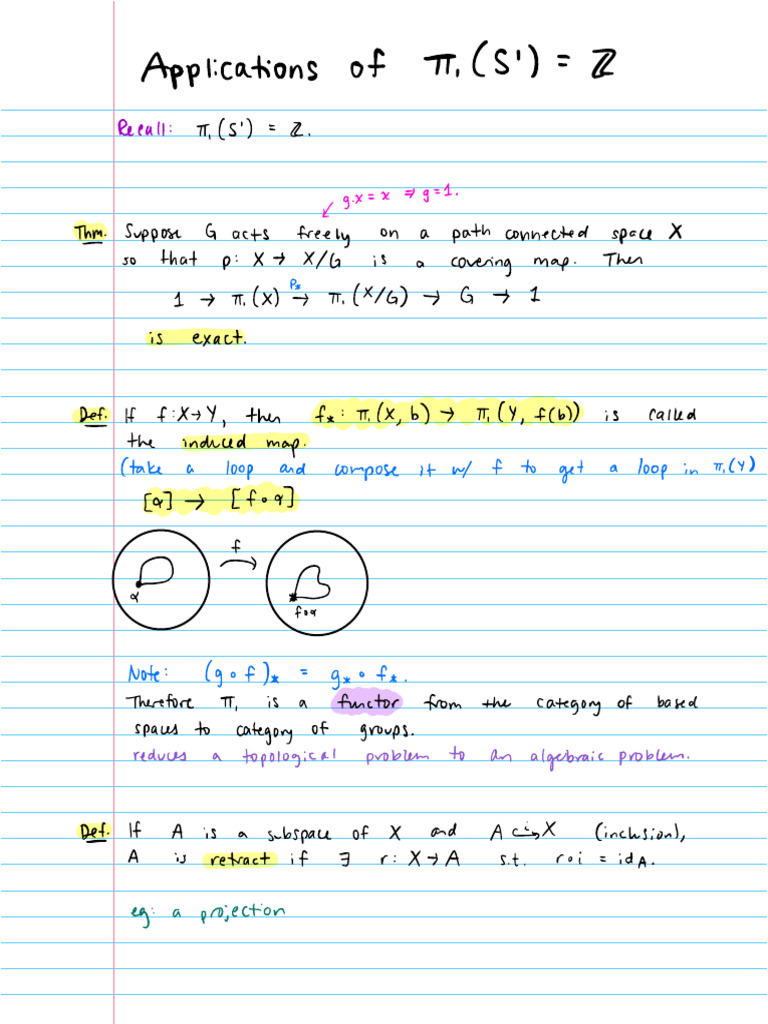 Applications of π₁(S¹) = ℤ
Recall: π₁(S¹) = ℤ.
g.x = x ⇒ g=1.
Thm. Suppose G acts freely on a path connected space X
so that p: X → X/G is a covering map. Then
1 → π₁(X) →^{P*} π₁(X/G) → G → 1
is exact.
Def. If f: X→Y, then f*: π₁(X, b) → π₁(Y, f(b)) is called
the induced map.
(take a loop and compose it w/ f to get a loop in π₁(Y)
[α] → [f∘α]
f
α
f∘α
Note: (g∘f)* = g* ∘ f*.
Therefore π₁ is a functor from the category of based
spaces to category of groups.
reduces a topological problem to an algebraic problem.
Def. If A is a subspace of X and A ↪^{i} X (inclusion),
A is retract if ∃ r: X→A s.t. r∘i = id_A.
eg: a projection